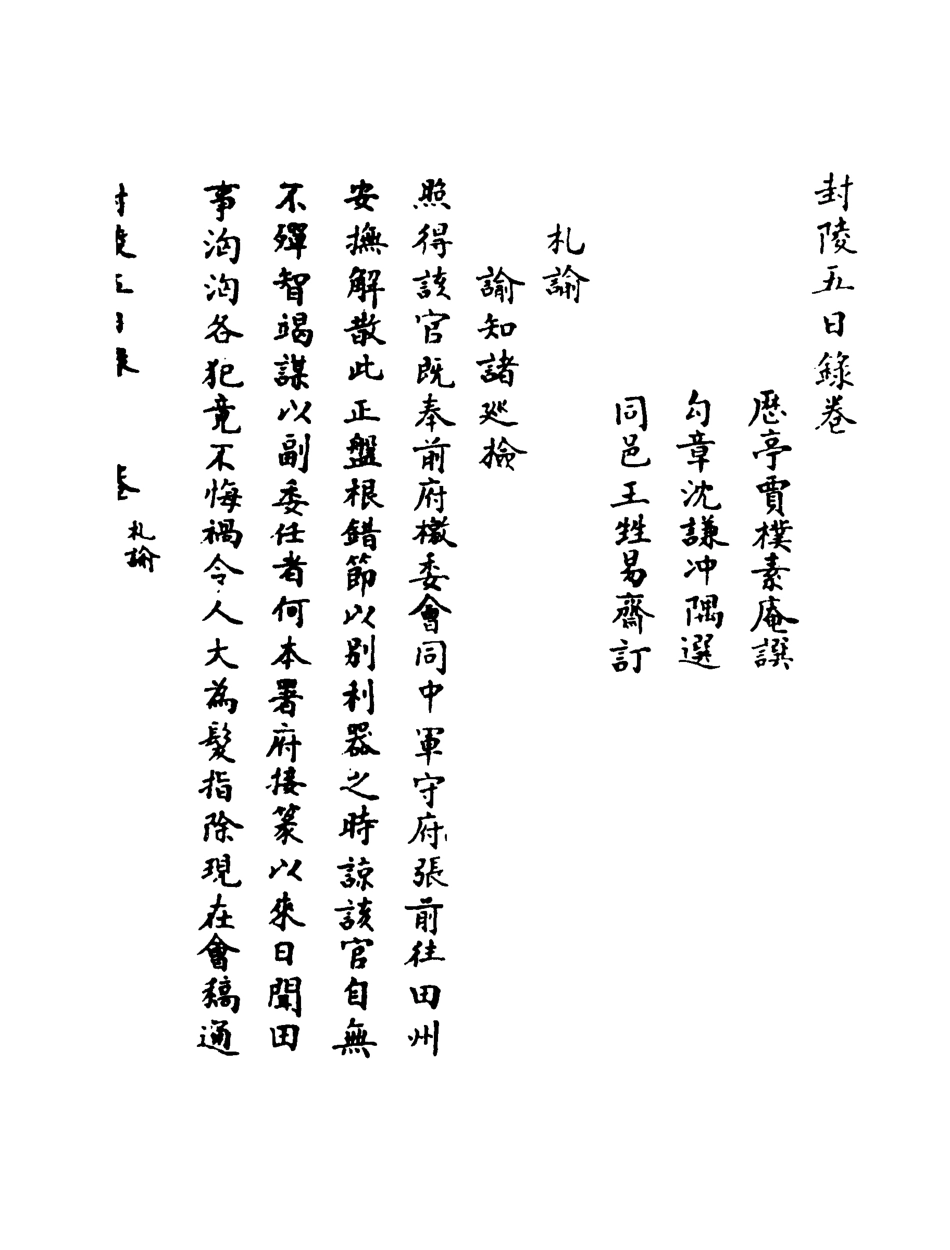 封陵五日錄卷
歷亭賈樸素庵譔
勾章沈謙冲隅選
同邑王甡易齋訂
札諭
諭知諸廵檢
照得該官既奉前府檄委會同中軍守府張前往田州
安撫解散此正盤根錯節以別利器之時諒該官自無
不殫智竭謀以副委任者何本署府接篆以來日聞田
事洶洶各犯竟不悔禍令人大為髮指除現在會稿通
封陵五日錄 卷 札諭